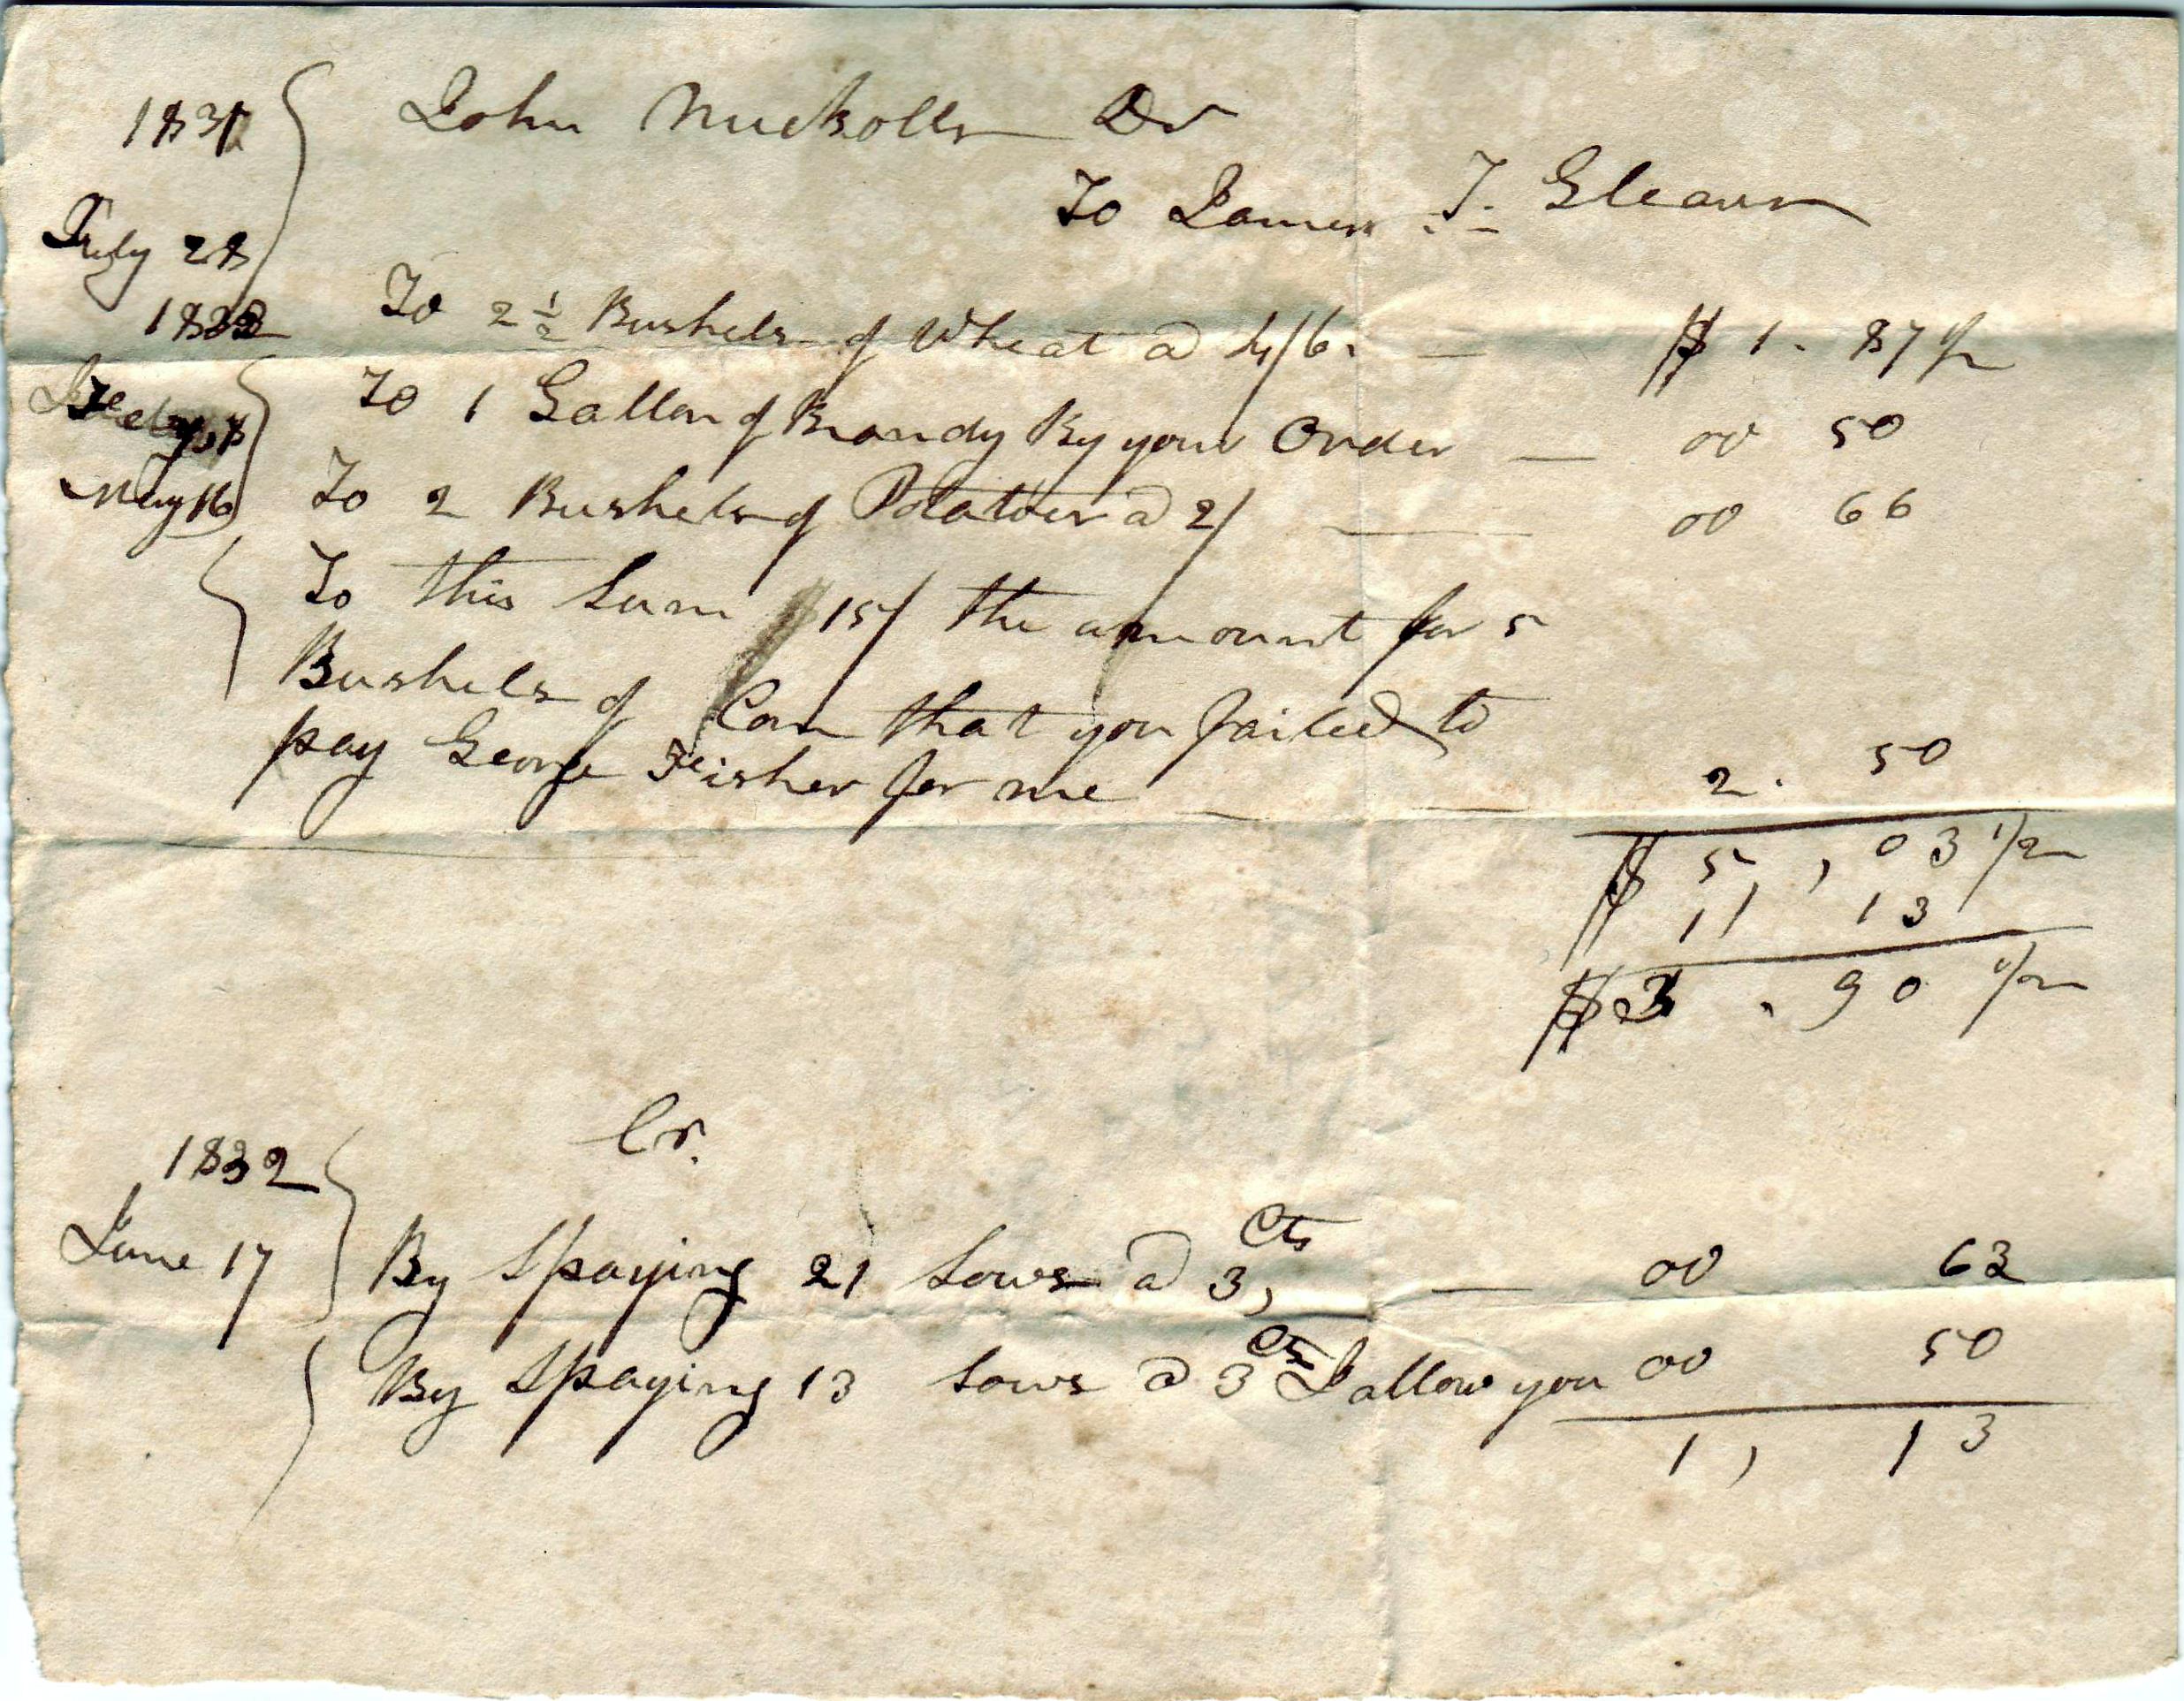 1831 John Nuckolls Dr
To James T. Gleaves
July 28
1832 To 2 1/2 Bushels of Wheat @ 4/6. — $ 1. 87 1/2
To 1 Gallon of Brandy By your Order — 00 50
May 16 To 2 Bushels of Potatoes @ 2/ — 00 66
To this Sum 15/ the amount for 5
Bushels of Corn that you failed to
pay George Fisher for me — 2. 50
$ 5, 03 1/2
1, 13
$ 3. 90 1/2
Cr.
1832
June 17 By Spaying 21 Sows @ 3, Cts — 00 63
By Spaying 13 Sows @ 3 Cts I allow you 00 50
1, 13